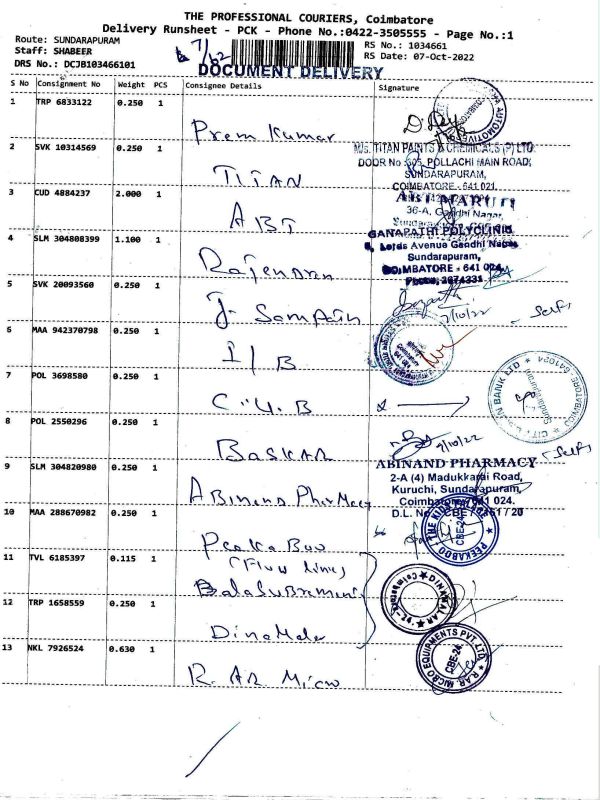 THE PROFESSIONAL COURIERS, Coimbatore
Delivery Runsheet - PCK - Phone No.:0422-3505555 - Page No.:1
Route: SUNDARAPURAM
Staff: SHABEER
DRS No.: DCJB103466101
RS No.: 1034661
RS Date: 07-Oct-2022
DOCUMENT DELIVERY
S No Consignment No Weight PCS Consignee Details Signature
1 TRP 6833122 0.250 1
Prem Kumar
AUTOMOTIVES
2 SVK 10314569 0.250 1
TITAN
M/s. TITAN PAINTS & CHEMICALS (P) LTD.
DOOR No :305, POLLACHI MAIN ROAD,
SUNDARAPURAM,
COIMBATORE - 641 021.
3 CUD 4884237 2.000 1
ABT
ABT MARUTI
36-A, Gandhi Nagar,
4 SLM 304808399 1.100 1
Rajendran
GANAPATHI POLYCLINIC
Lotus Avenue Gandhi Nagar
Sundarapuram,
COIMBATORE - 641 024.
Phone: 2674331
5 SVK 20093560 0.250 1
J. Sampath
7/10/22 - Self
6 MAA 942370798 0.250 1
I/B
7 POL 3698580 0.250 1
C.U.B
CITY UNION BANK LTD
Sundarapuram
COIMBATORE 641024
8 POL 2550296 0.250 1
BASKAR
7/10/22 - Self
9 SLM 304820980 0.250 1
Abinand Pharmacy
ABINAND PHARMACY
2-A (4) Madukkarai Road,
Kuruchi, Sundarapuram,
Coimbatore - 641 024.
10 MAA 288670982 0.250 1
Peekaboo
THE KIDS
PEEKABOO
CBE-24
11 TVL 6185397 0.115 1
Balasubramani
12 TRP 1658559 0.250 1
Dinamalar
DINAMALAR
Coimbatore-24.
13 NKL 7926524 0.630 1
R. AR Micro
R.A.R. MICRO EQUIPMENTS PVT. LTD.
CBE-24